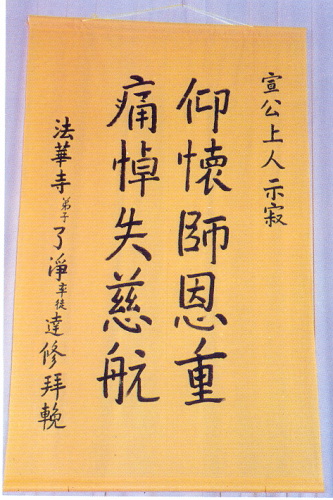 宣公上人示寂
仰懷師恩重
痛悼失慈航
法華寺弟子了淨率徒達修拜輓